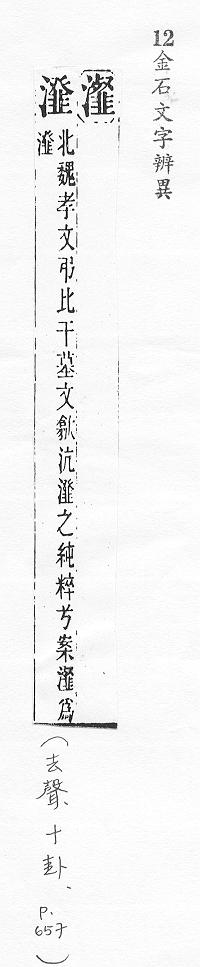 12金石文字辨異
瀣
瀣 北魏孝文弔比干墓文歙沆瀣之純粹兮案瀣爲
瀣
（去聲、十卦、p.657）